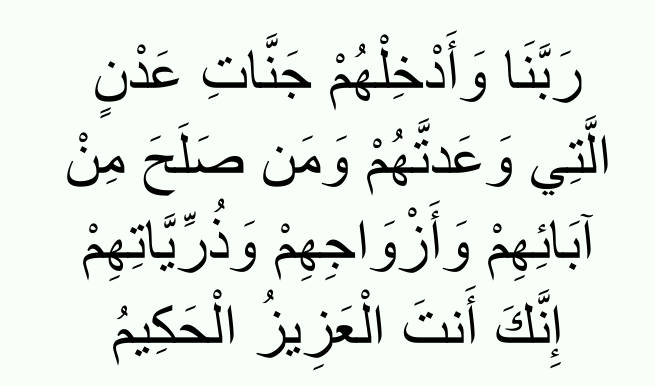 رَبَّنَا وَأَدْخِلْهُمْ جَنَّاتِ عَدْنٍ
الَّتِي وَعَدتَّهُمْ وَمَن صَلَحَ مِنْ
آبَائِهِمْ وَأَزْوَاجِهِمْ وَذُرِّيَّاتِهِمْ
إِنَّكَ أَنتَ الْعَزِيزُ الْحَكِيمُ